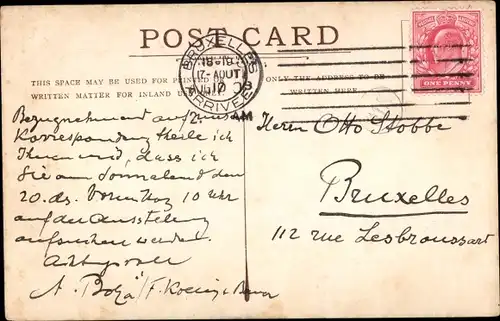 POST CARD
THIS SPACE MAY BE USED FOR PRINTED OR
WRITTEN MATTER FOR INLAND
ONLY THE ADDRESS TO BE
WRITTEN HERE.
BRUXELLES
18-19
17-AOUT
1910
ARRIVEE
AM
ONE PENNY
Bezugnehmend auf
Korrespondenz theile ich
Ihnen mit, dass ich
Sie am Sonnabend den
20. ds. Vormittag 10 Uhr
auf der Ausstellung
aufsuchen werde.
Achtungsvoll
Herrn Otto Stobbe
Bruxelles
112 rue Lesbroussart